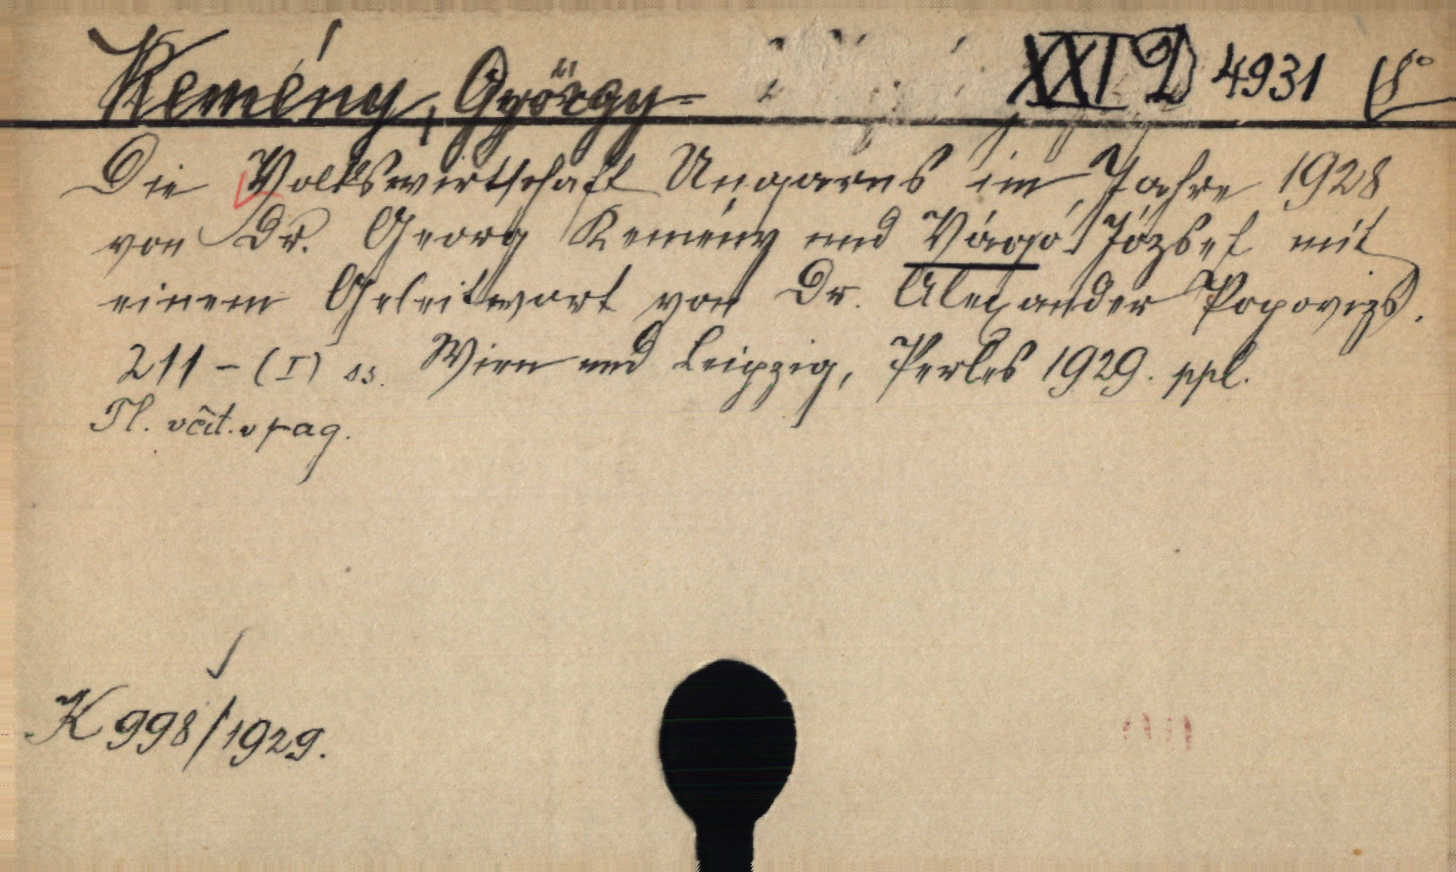 Kemény, György XXI D 4931 8°
Die Volkswirtschaft Ungarns im Jahre 1928
von Dr. Georg Kemény und Vágó József mit
einem Geleitwort von Dr. Alexander Popovizs.
211 - (I) ss. Wien und Leipzig, Perles 1929. ppl.
Tl. včit. v pag.
K 998/1929.